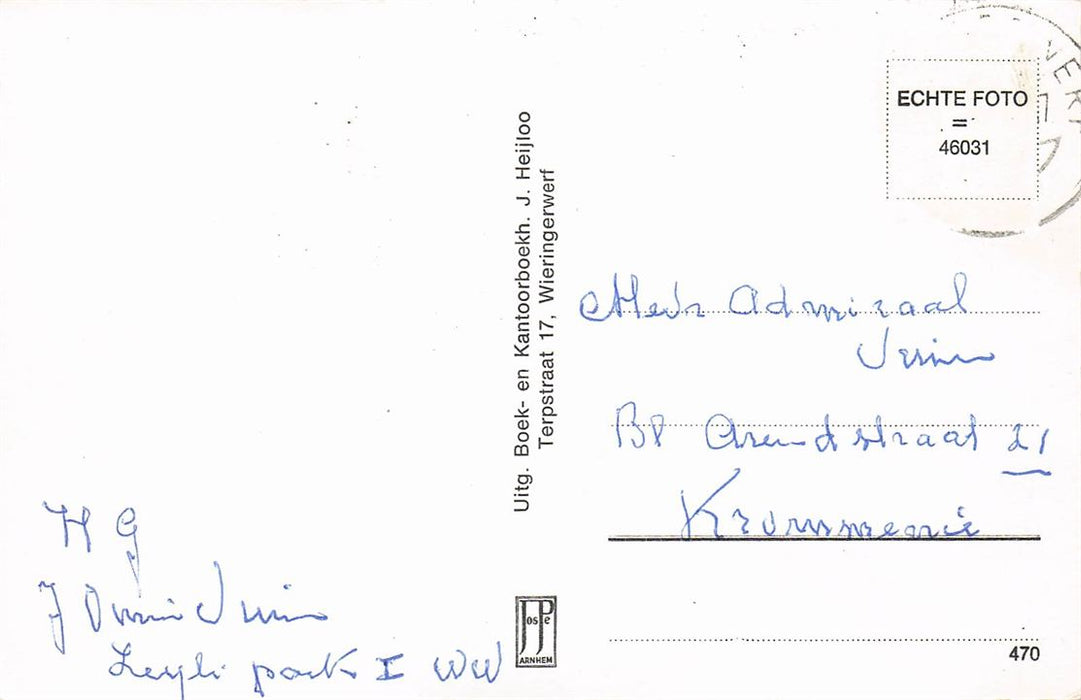 ECHTE FOTO
=
46031
Uitg. Boek- en Kantoorboekh. J. Heijloo
Terpstraat 17, Wieringerwerf
Admiraal
BP Arendstraat 21
Krommenie
H G
J
park I WW
JosPe
ARNHEM
470